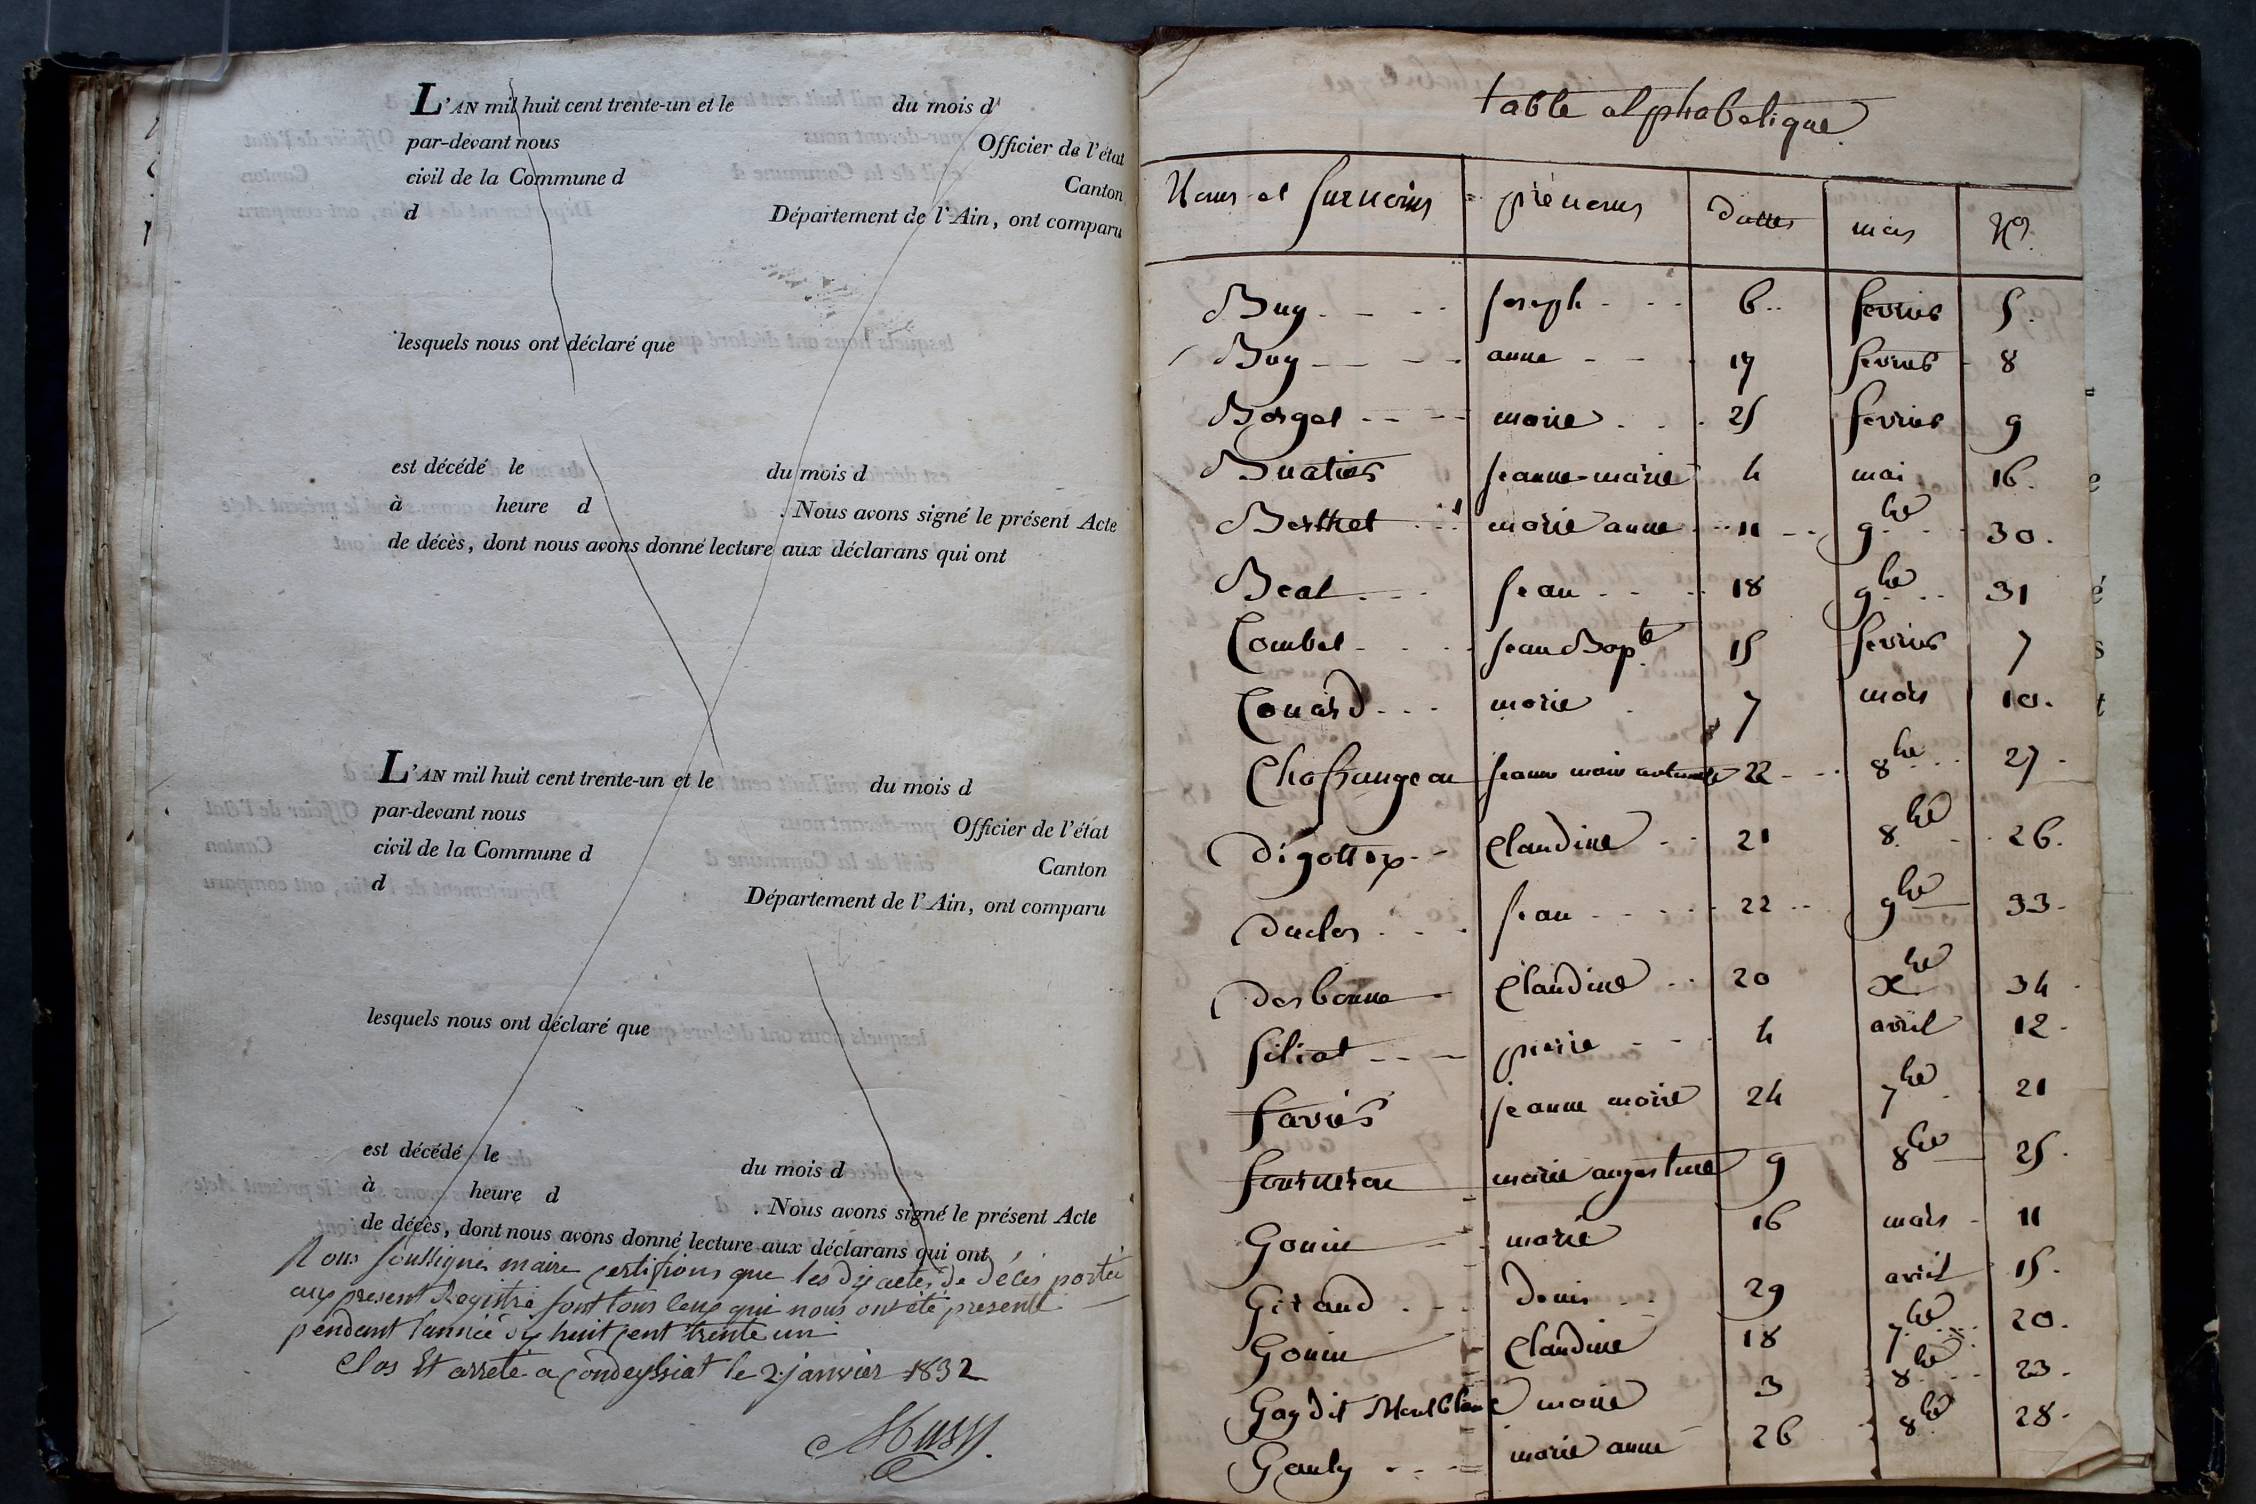 L'AN mil huit cent trente-un et le du mois d
par-devant nous Officier de l'état
civil de la Commune d Canton
d Département de l'Ain, ont comparu
lesquels nous ont déclaré que
est décédé le du mois d
à heure d . Nous avons signé le présent Acte
de décès, dont nous avons donné lecture aux déclarans qui ont
L'AN mil huit cent trente-un et le du mois d
par-devant nous Officier de l'état
civil de la Commune d Canton
d Département de l'Ain, ont comparu
lesquels nous ont déclaré que
est décédé le du mois d
à heure d . Nous avons signé le présent Acte
de décès, dont nous avons donné lecture aux déclarans qui ont
Nous soussigné maire certifions que les actes de décés porté
aux present Registre sont tous ceux qui nous ont été presenté
pendant l'année dix huit cent trente un
Clos Et arreté a Condeyssiat le 2 janvier 1832
Musy
table alphabetique
Noms et surnoms prénoms dattes mois Nos
Buy joseph 6 fevrier 5
Buy anne 17 fevrier 8
Borget marie 25 fevrier 9
Buatier jeanne-marie 4 mai 16
Berthet marie anne 11 9bre 30
Beal jean 18 9bre 31
Combet jean Bapte 15 fevrier 7
Couard marie 7 mars 10
Chafrangeau jeanne marie 22 8bre 27
Digottex Claudine 21 8bre 26
Duclos jean 22 9bre 33
Desbonne Claudine 20 Xbre 34
filiat pierre 4 avril 12
favier jeanne marie 24 7bre 21
fourneron marie augustine 9 8bre 25
Gonin marie 16 mars 11
Giraud Denis 29 avril 15
Gonin Claudine 18 7bre 20
Gay dit Montblanc marie 3 8bre 23
Gauly marie anne 26 8bre 28